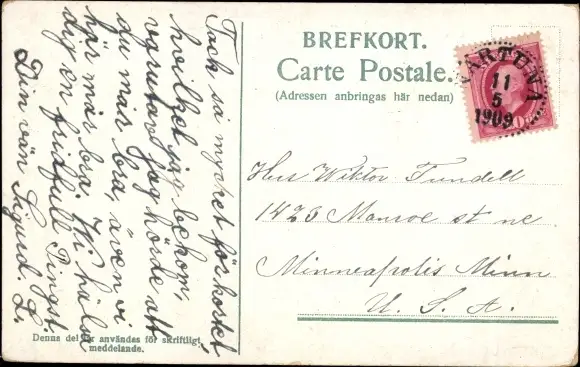 BREFKORT.
Carte Postale.
(Adressen anbringas här nedan)
VÄRTUNA
11
5
1909
Herr Wiktor Tundell
1423 Monroe st ne.
Minneapolis Minn
U. S. A.
Tack så mycket för kortet,
hvilket jag bekom,
jag hörde att
du mår bra, även vi
här mår bra. Vi hälsa
dig en fridfull Pingst.
Din vän Sigurd. L.
Denna del får användas för skriftligt
meddelande.